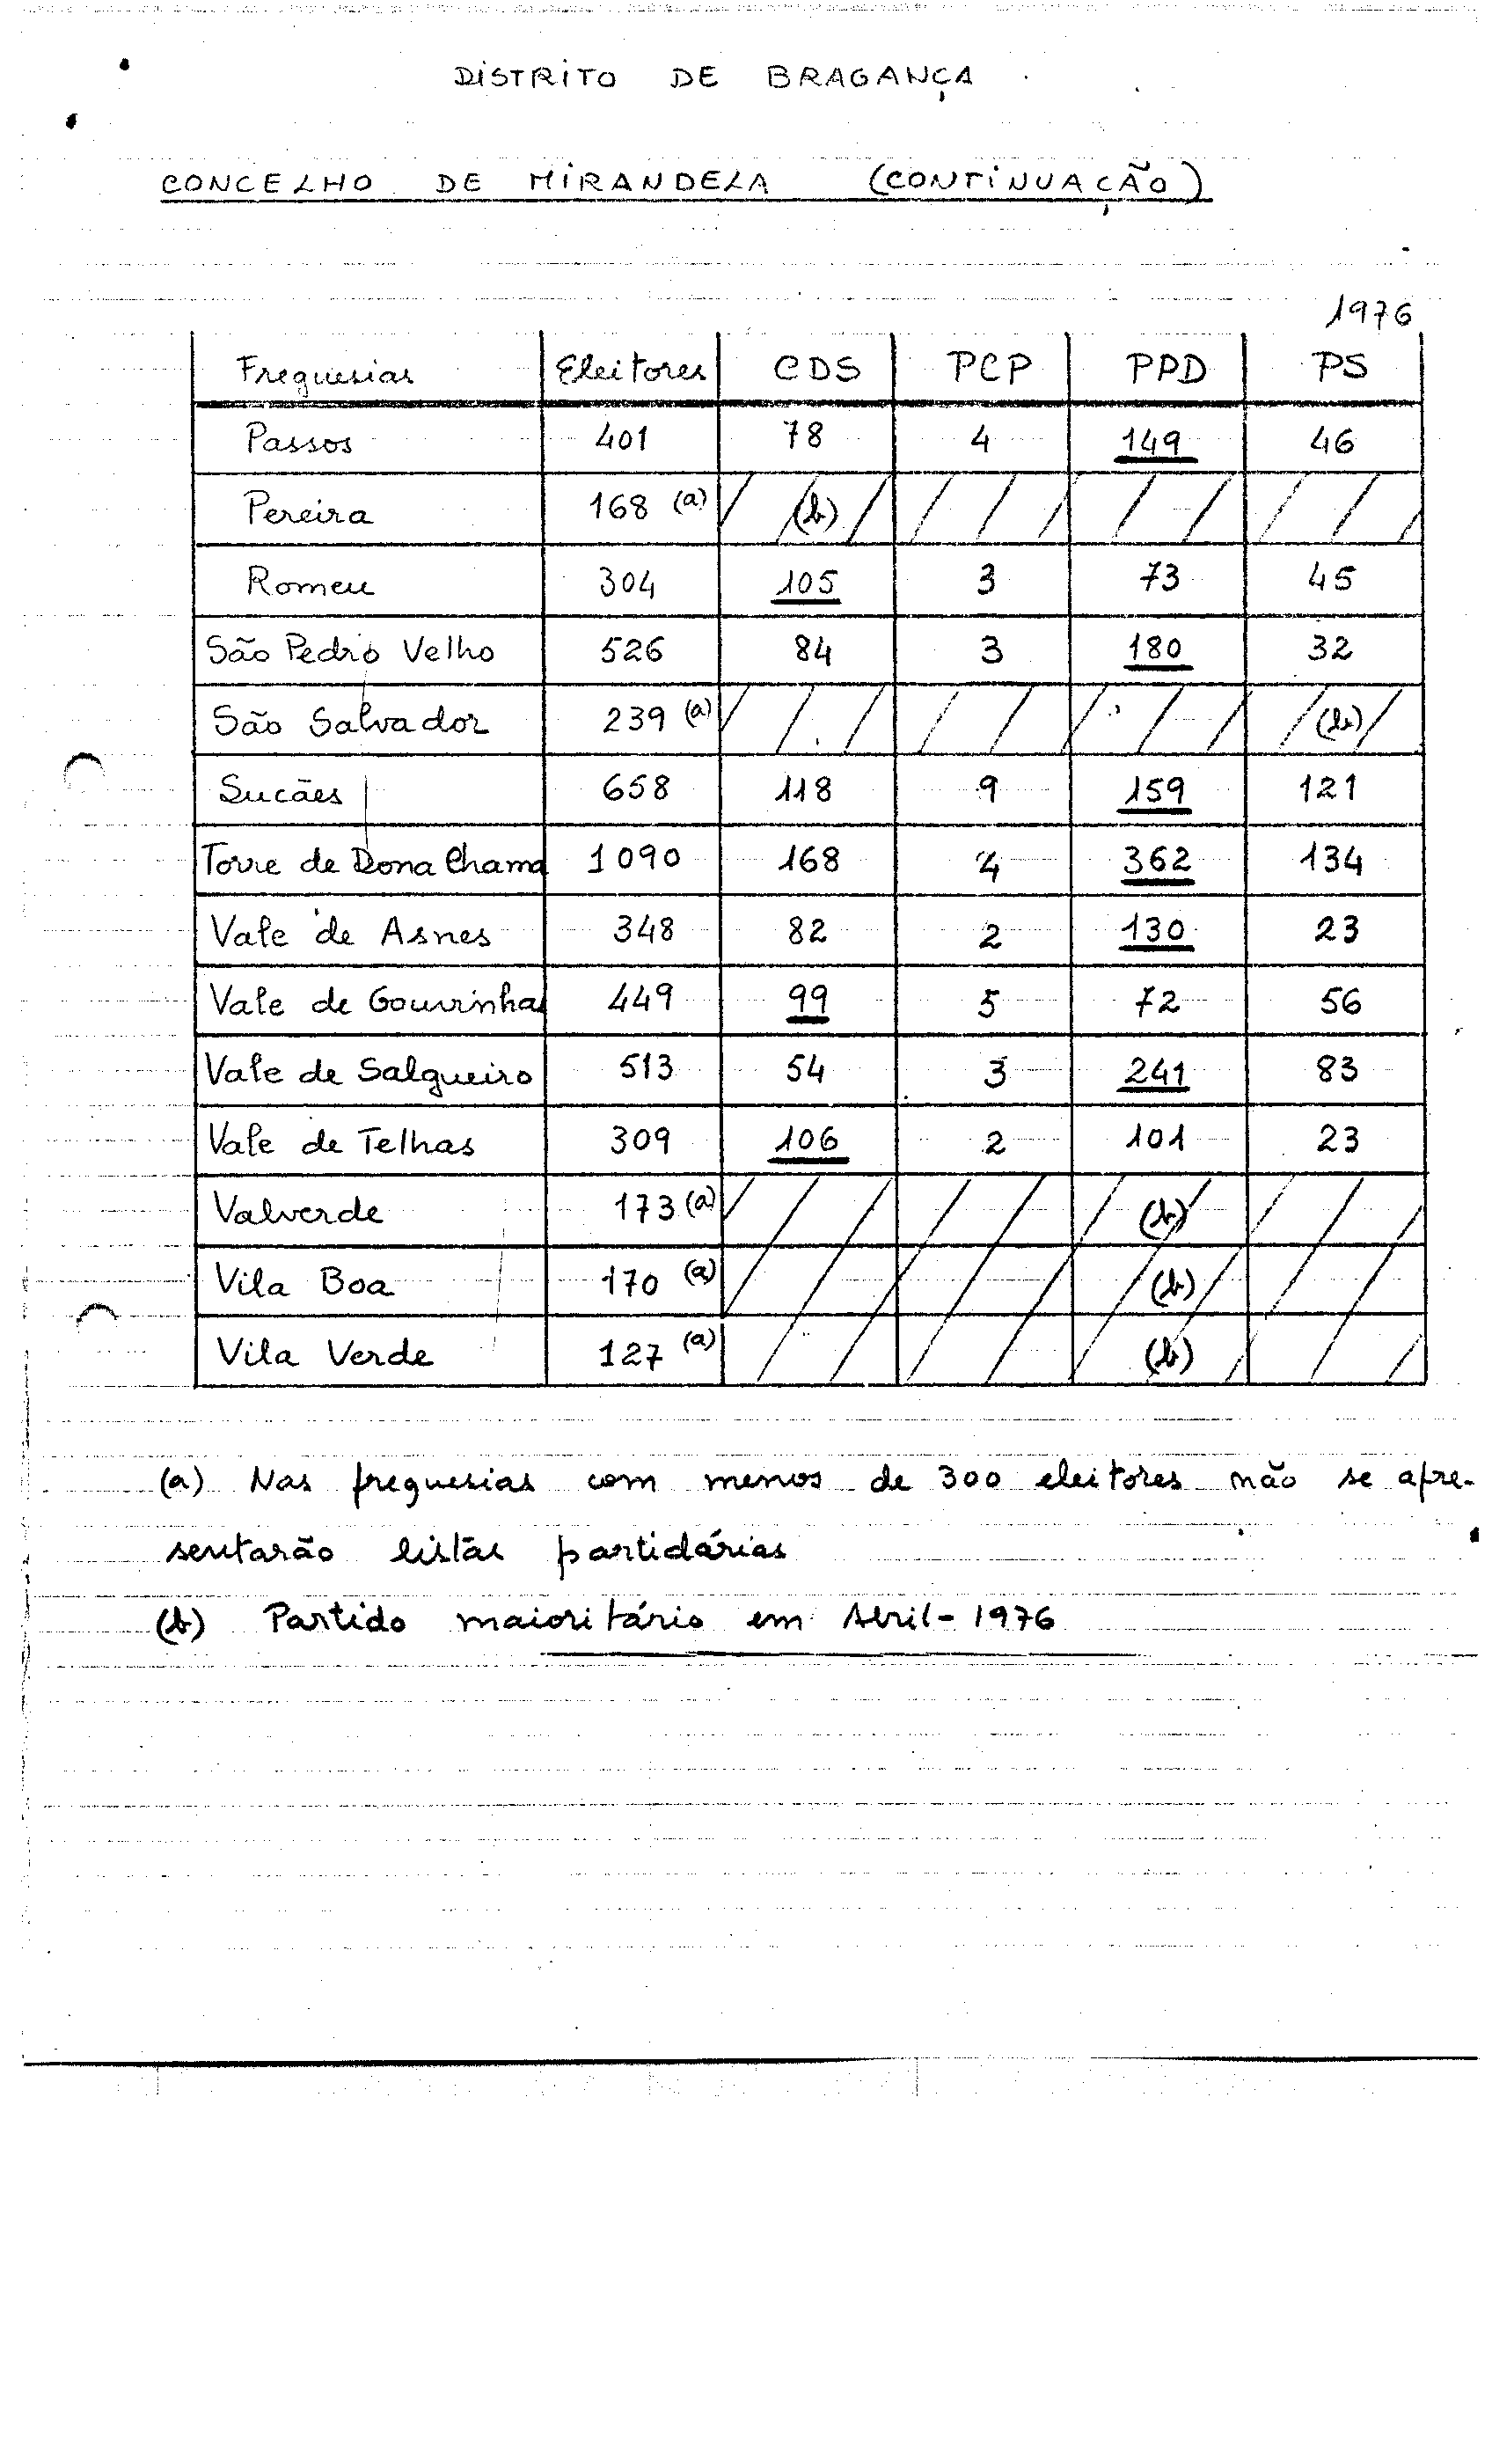 DISTRITO DE BRAGANÇA
CONCELHO DE MIRANDELA (CONTINUAÇÃO)
1976
Freguesias Eleitores CDS PCP PPD PS
Passos 401 78 4 149 46
Pereira 168 (a) (b)
Romeu 304 105 3 73 45
São Pedro Velho 526 84 3 180 32
São Salvador 239 (a) (b)
Sucães 658 118 9 159 121
Torre de Dona Chama 1090 168 4 362 134
Vale de Asnes 348 82 2 130 23
Vale de Gouvinhas 449 99 5 72 56
Vale de Salgueiro 513 54 3 241 83
Vale de Telhas 309 106 2 101 23
Valverde 173 (a) (b)
Vila Boa 170 (a) (b)
Vila Verde 127 (a) (b)
(a) Nas freguesias com menos de 300 eleitores não se apre-
sentarão listas partidárias
(b) Partido maioritário em Abril - 1976